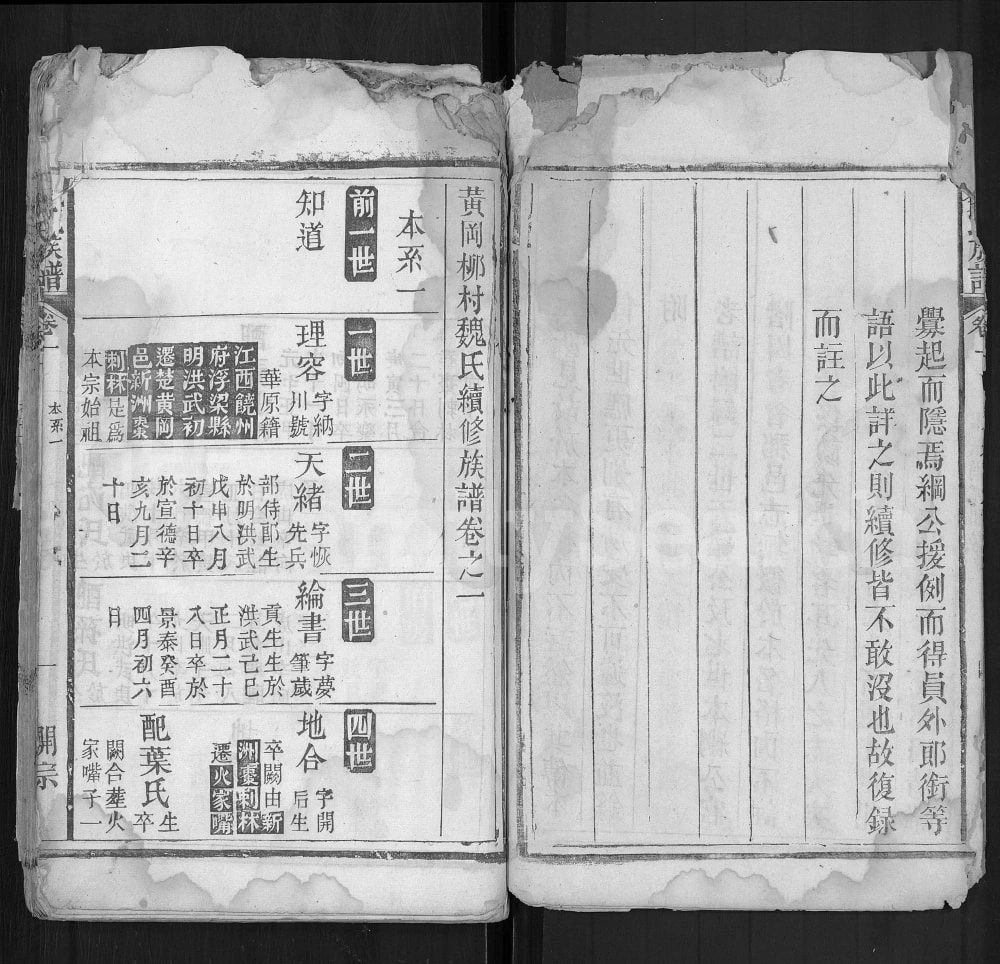 釁起而隱焉綱公援例而得員外郎銜等
語以此詳之則續修皆不敢沒也故復録
而註之
黃岡桞村魏氏續修族譜卷之一
本系一
前一世
知道
一世
理容
字納
川號
華原籍
江西饒州
府浮梁縣
明洪武初
遷楚黃岡
邑新洲棗
刺林是爲
本宗始祖
二世
天緒
字恢
先兵
部侍郎生
於明洪武
戊申八月
初十日卒
於宣德辛
亥九月二
十日
三世
綸書
字夢
筆歲
貢生生於
洪武己巳
正月二十
八日卒於
景泰癸酉
四月初六
日
四世
地合
字開
后生
卒闕由新
洲棗刺林
遷火家嘴
配葉氏
生
卒
闕合塟火
家嘴子一
族譜
卷一
本系一
一
開宗